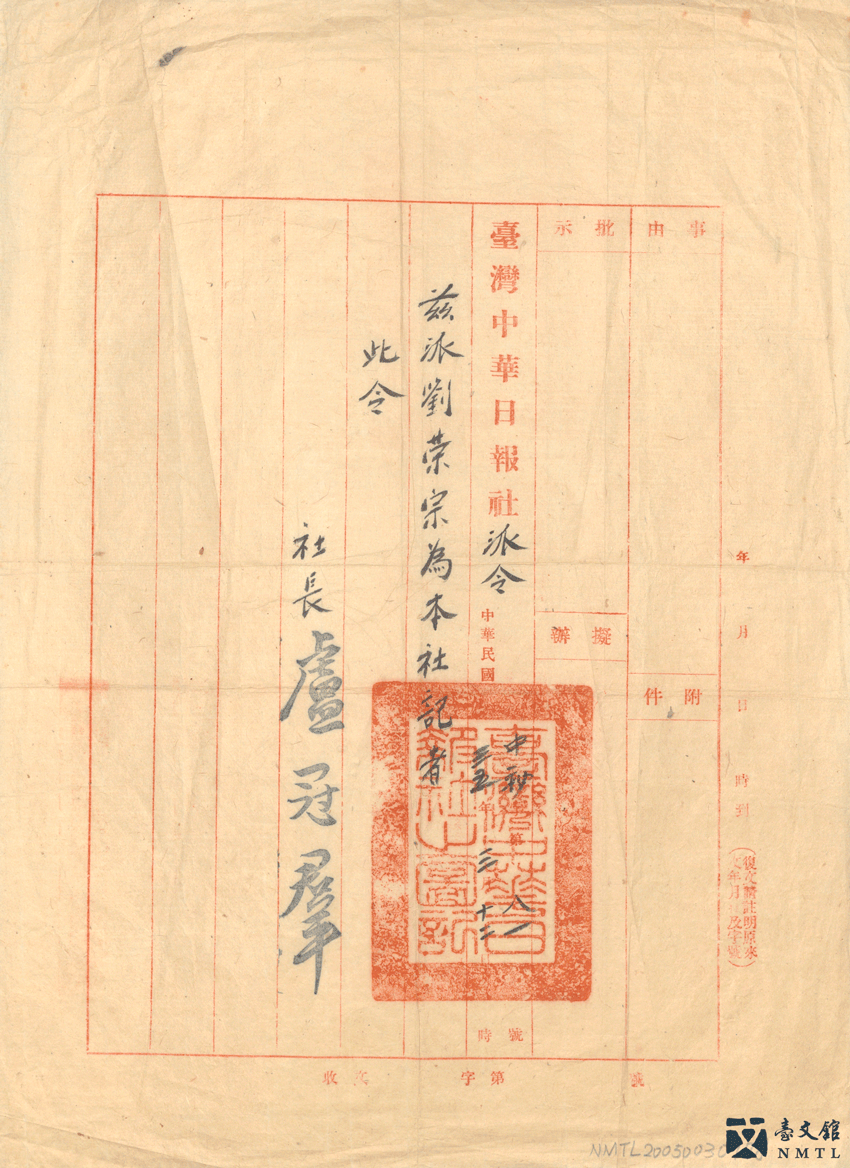 年 月 日 時到
(復文請註明原來
文年月 及字號)
事由
附件
批示
擬辦
臺灣中華日報社派令
中華民國三五年三 十二 時
中秘 第八一號
茲派劉荣宗為本社記者
此令
社長盧冠羣
臺灣中華日報社圖記
收文 字第 號
NMTL2005003
臺文館
NMTL